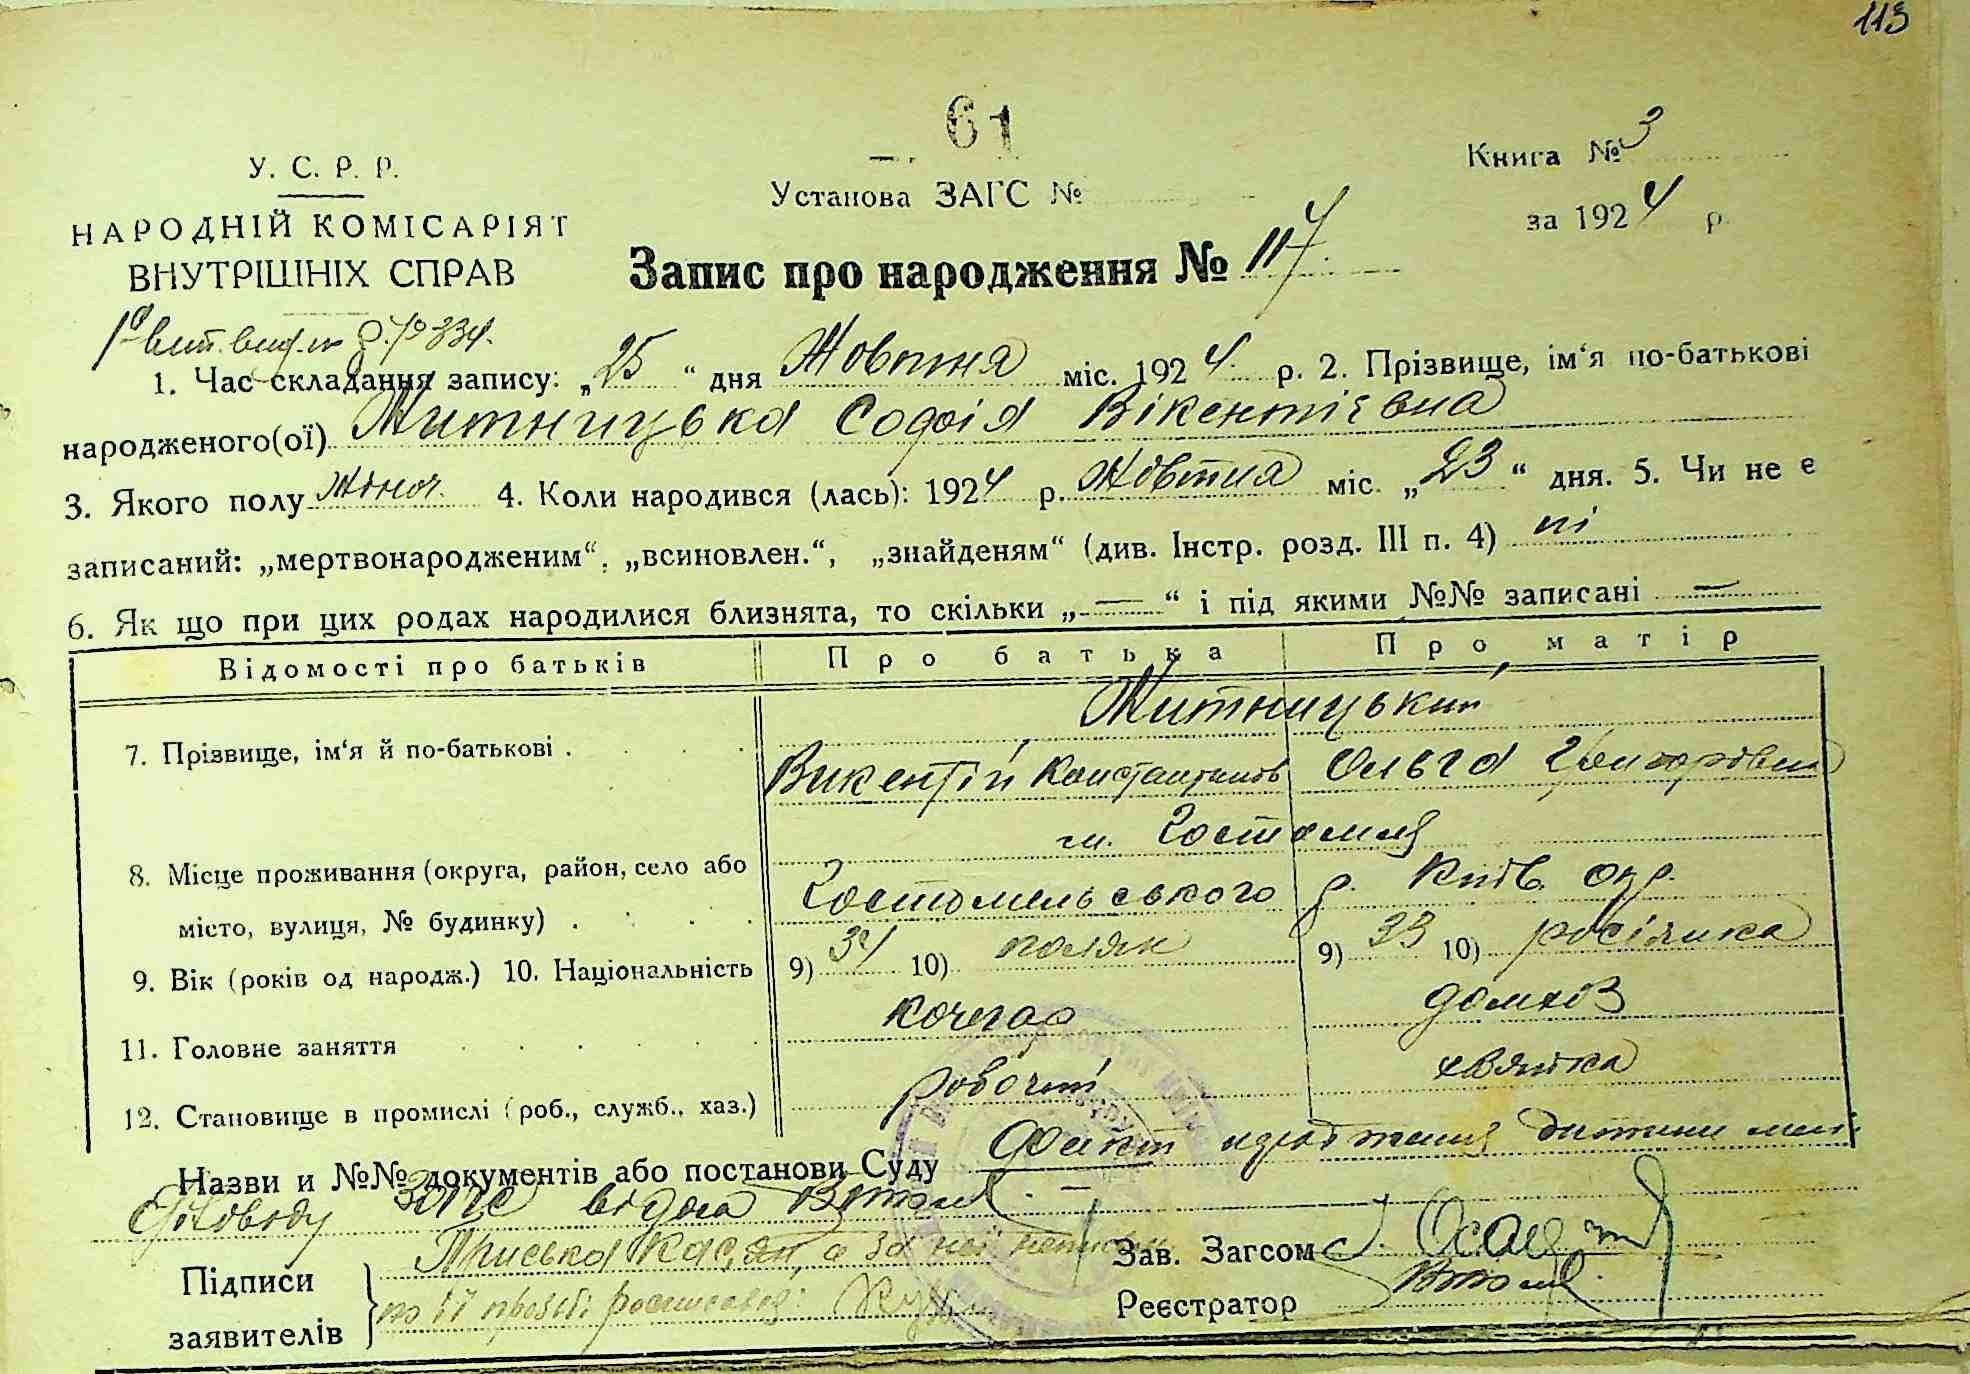 113
61
У. С. Р. Р.
Книга № 3
Установа ЗАГС №
за 1924 р.
НАРОДНІЙ КОМІСАРІЯТ
ВНУТРІШНІХ СПРАВ
Запис про народження № 117
1. Час складання запису: „25“ дня Жовтня міс. 1924 р. 2. Прізвище, ім‘я по-батькові
народженого(ої) Житницька Софія Вікентієвна
3. Якого полу жіноч. 4. Коли народився (лась): 1924 р. Жовтня міс. „23“ дня. 5. Чи не є
записаний: „мертвонародженим“, „всиновлен.“, „знайденям“ (див. Інстр. розд. III п. 4) ні
6. Як що при цих родах народилися близнята, то скільки „—“ і під якими №№ записані —
Відомості про батьків Про батька Про матір
Житницький
7. Прізвище, ім‘я й по-батькові . Викентій Константинов Ольга Григоровна
м. Гостомля
8. Місце проживання (округа, район, село або
місто, вулиця, № будинку) . Гостомельського р. Київ. окр.
9. Вік (років од народж.) 10. Національність 9) 34 10) поляк 9) 33 10) росіянка
11. Головне заняття кочегар домхоз
12. Становище в промислі (роб., служб., хаз.) робочий
Назви и №№ документів або постанови Суду Факт народження дитини мені
Діловоду Загс відома
Підписи
заявителів
Приська Касян, а за неї
по її прозьбі росписався:
Зав. Загсом
Реєстратор